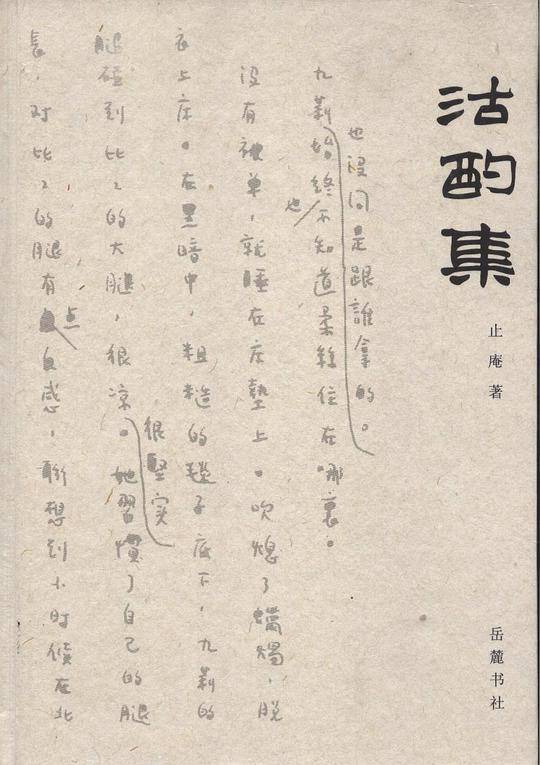 沽酌集
止庵著
岳麓书社
也没问是跟誰拿的。
九莉始終不知道柔絲住在哪裏。
也
没有被单，就睡在床墊上。吹熄了蠟燭，脱
衣上床。在黑暗中，粗糙的毯子底下，九莉的
很堅实
腿碰到比〻的大腿，很凉。她習慣了自己的腿
長，对比〻的腿有点反感，聯想到小时候在北